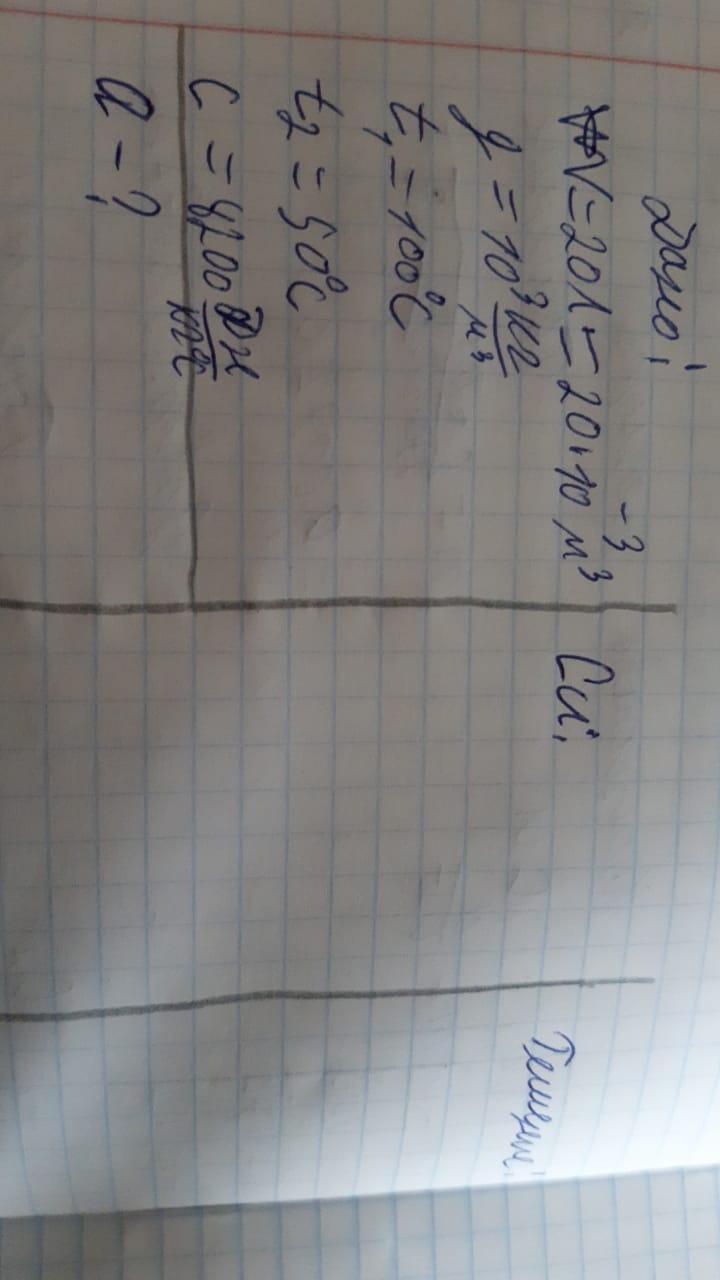 Дано:
V=20л=20·10⁻³ м³
g=10³ кг/м³
t₁=100°C
t₂=50°C
c=4200 Дж/кг°C
Q-?
Си:
Решение: